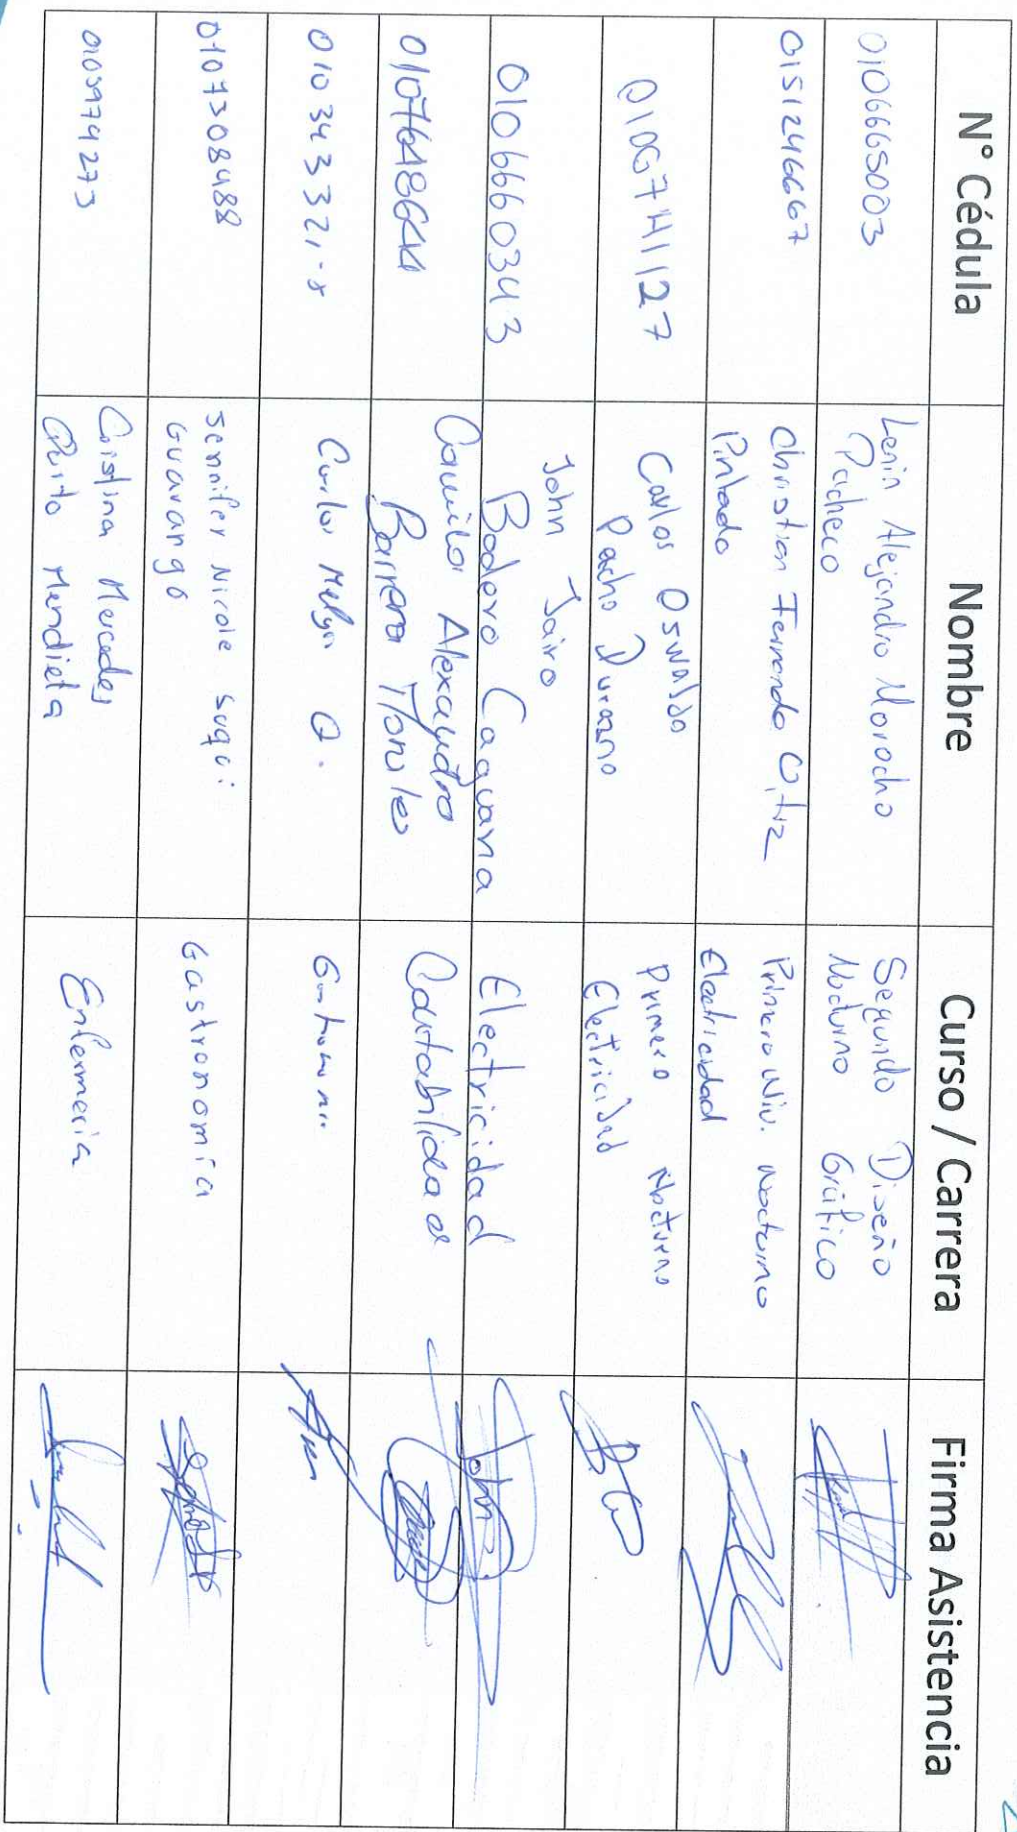 N° Cédula
Nombre
Curso / Carrera
Firma Asistencia
0106665003
Lenin Alejandro Morocho
Pacheco
Segundo Diseño
Nocturno Gráfico
0151246667
Christian Fernando Ortiz
Pintado
Primero Niv. Nocturno
Electricidad
0106741127
Carlos Oswaldo
Pacho Durazno
Primero Nocturno
Electricidad
0106660343
John Jairo
Bodero Caguana
Electricidad
John
Camila Alexandra
Barrera Morales
Contabilidad
010343321-8
Carlos
0107308488
Jennifer Nicole Suqui
Guarango
Gastronomía
0105974273
Cristina Mercedes
Quito Mendieta
Enfermería